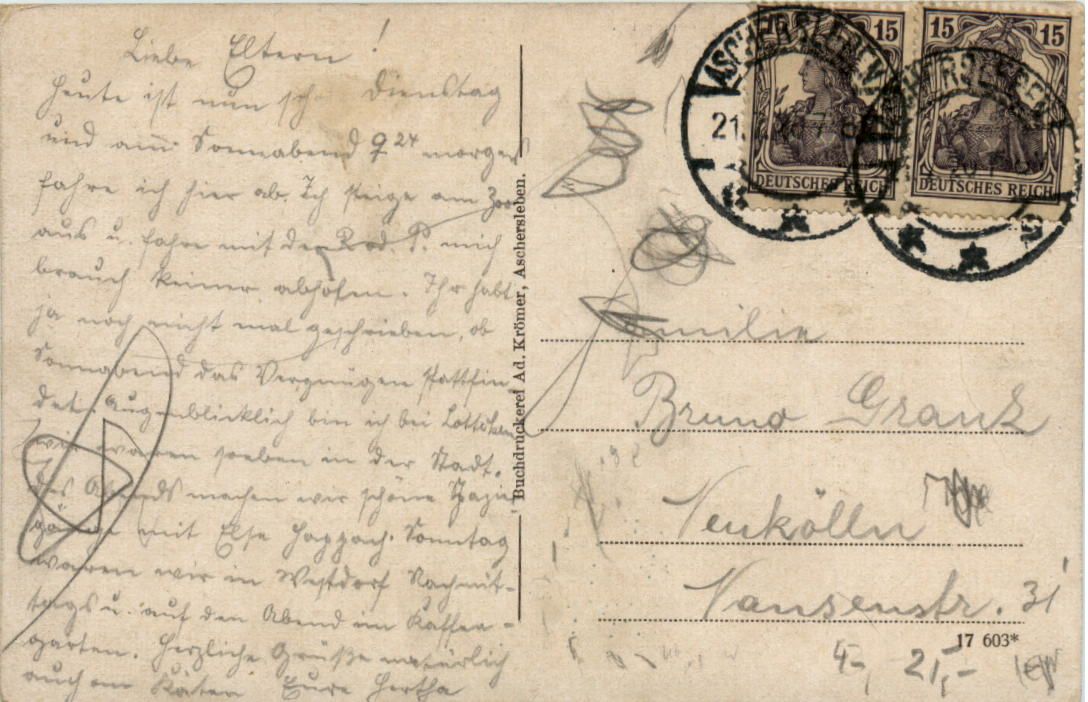 Liebe Eltern!
Heute ist nun sch Dienstag
und am Sonnabend 9 24 morgen
fahre ich hier ab. Ich steige am Zoo
aus u. fahre mit der mich
brauch keiner abholen. Ihr habt
ja noch nicht mal geschrieben, ob
Sonnabend das Vergnügen stattfin
det. Augenblicklich bin ich bei
wir waren soeben in der Stadt.
Des Abends machen wir schöne Spazier
gänge mit Else Sonntag
waren wir in Westdorf Nachmit-
tags u. auf den Abend im Kaffee-
garten. Herzliche Grüße natürlich
auch an Käten Eure Hertha
Buchdruckerei Ad. Krömer, Aschersleben.
15
15
DEUTSCHES REICH
DEUTSCHES REICH
ASCHERSLEBEN
ASCHERSLEBEN
21.
Familie
Bruno Grank
Neukölln
Nansenstr. 31
17 603*
4,- 21,-